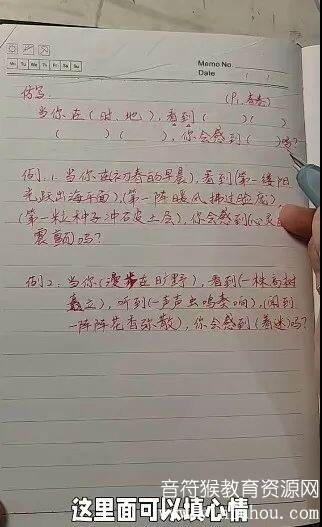 Memo No.
Mo Tu We Th Fr Sa Su
Date / /
仿写:
(Pi.春卷)
当你在(时、地),看到( )( )
( )( ),你会感到( )吗?
例1.当你(在初春的早晨),看到(第一缕阳
光跃出海平面),(第一阵暖风拂过脸庞)
(第一粒种子冲石皮土层),你会感到(心灵的
震颤)吗?
例2:当你(漫步在旷野),看到(一株高树
矗立),听到(一声声虫鸣奏响),(闻到
一阵阵花香弥散),你会感到(着迷)吗?
这里面可以填心情
音符猴教育资源网